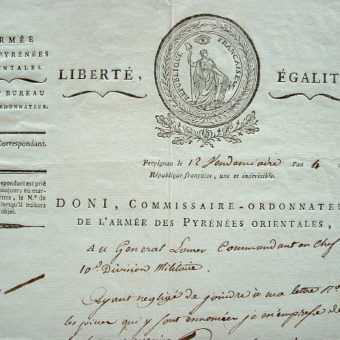 ARMÉE
PYRÉNÉES
ENTALES.
BUREAU
ORDONNATEUR.
Correspondant.
pondant est prié
oujours en mar-
ettre, le N.° de
lorsqu'il traitera
objet.
LIBERTÉ,
RÉPUBLIQUE FRANÇAISE
ÉGALIT
Perpignan le 12 Vendemiaire l'an 4
République française, une et indivisible.
DONI, COMMISSAIRE-ORDONNATE
DE L'ARMÉE DES PYRÉNÉES ORIENTALES,
Au General Commandant en Chef
10e Division Militaire.
Ayant negligé de joindre à ma lettre N°
les pieces qui y sont enoncées je m'empresse de